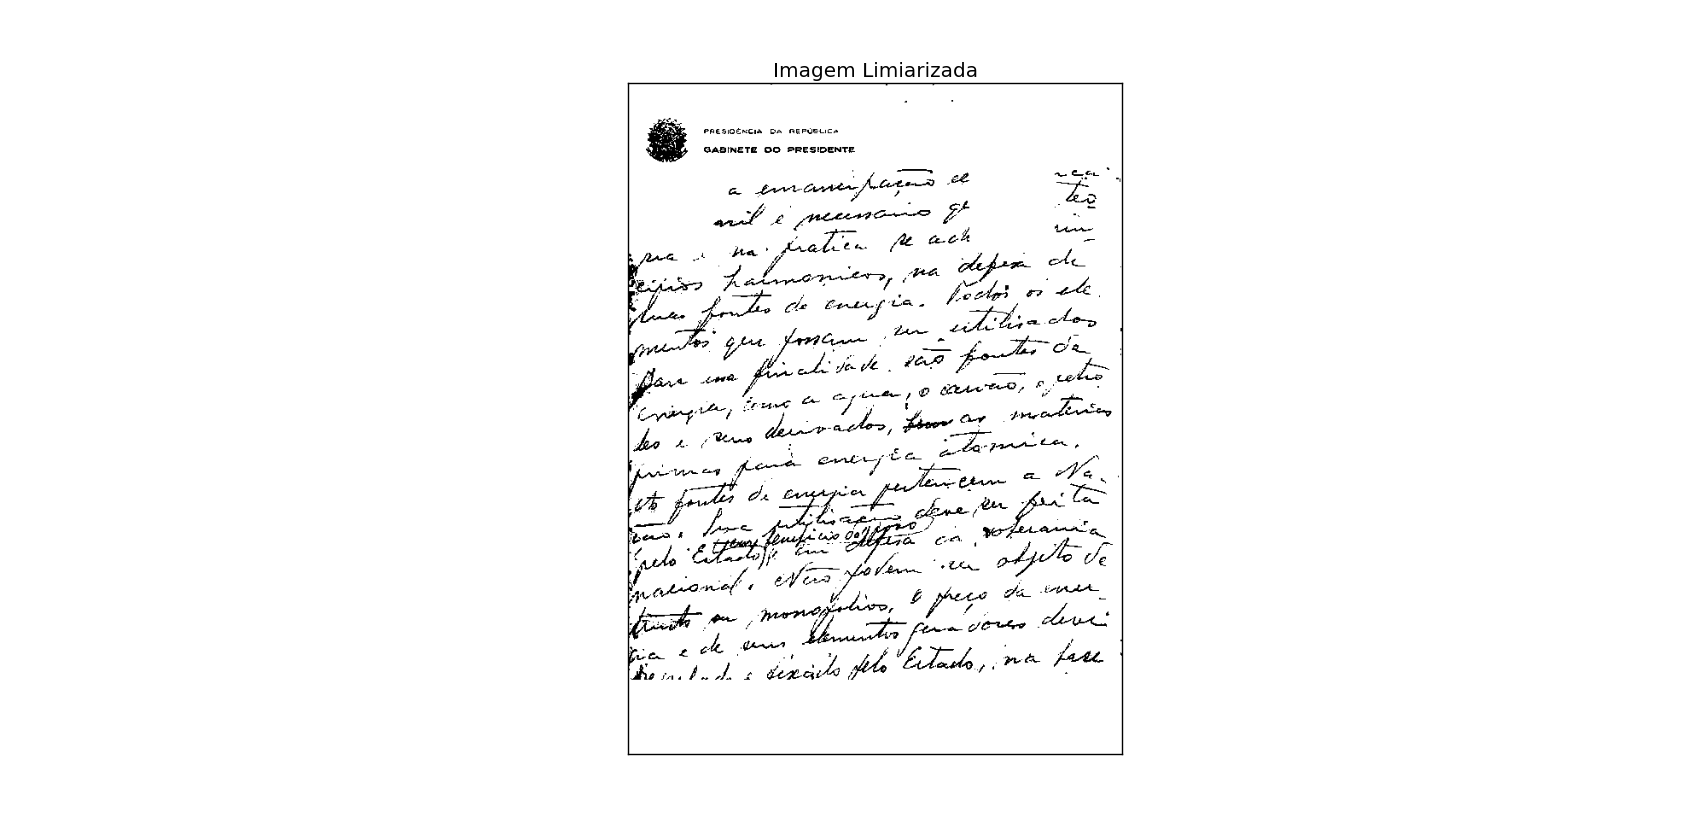 Imagem Limiarizada
PRESIDÊNCIA DA REPÚBLICA
GABINETE DO PRESIDENTE
a emancipação
é necessario
na pratica se ach
cipios harmonicos, na defesa de
suas fontes de energia. Todos os ele
mentos que possam ser utilisados
para essa finalidade são fontes da
energia, como a agua, o carvão, o petro
leo e seus derivados, as materias
primas para energia atomica.
fontes de energia pertencem a Na-
ção. Sua utilisação deve ser feita
em beneficio do povo
pelo Estado, em defesa da soberania
nacional. Não podem ser objeto de
trusts ou monopolios. O preço da ener-
gia e de seus elementos geradores deve
e fixado pelo Estado, na fase